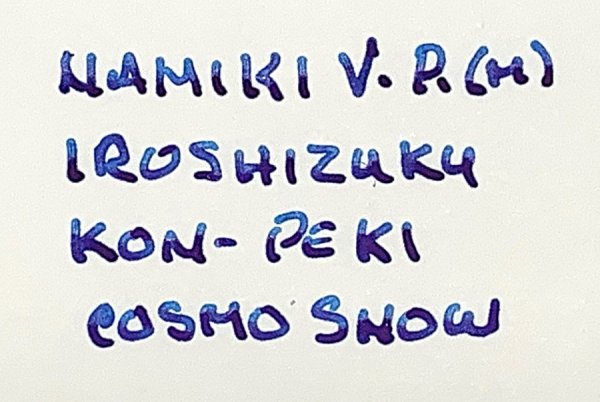 NAMIKI V.P.(M)
IROSHIZUKU
KON-PEKI
COSMO SNOW